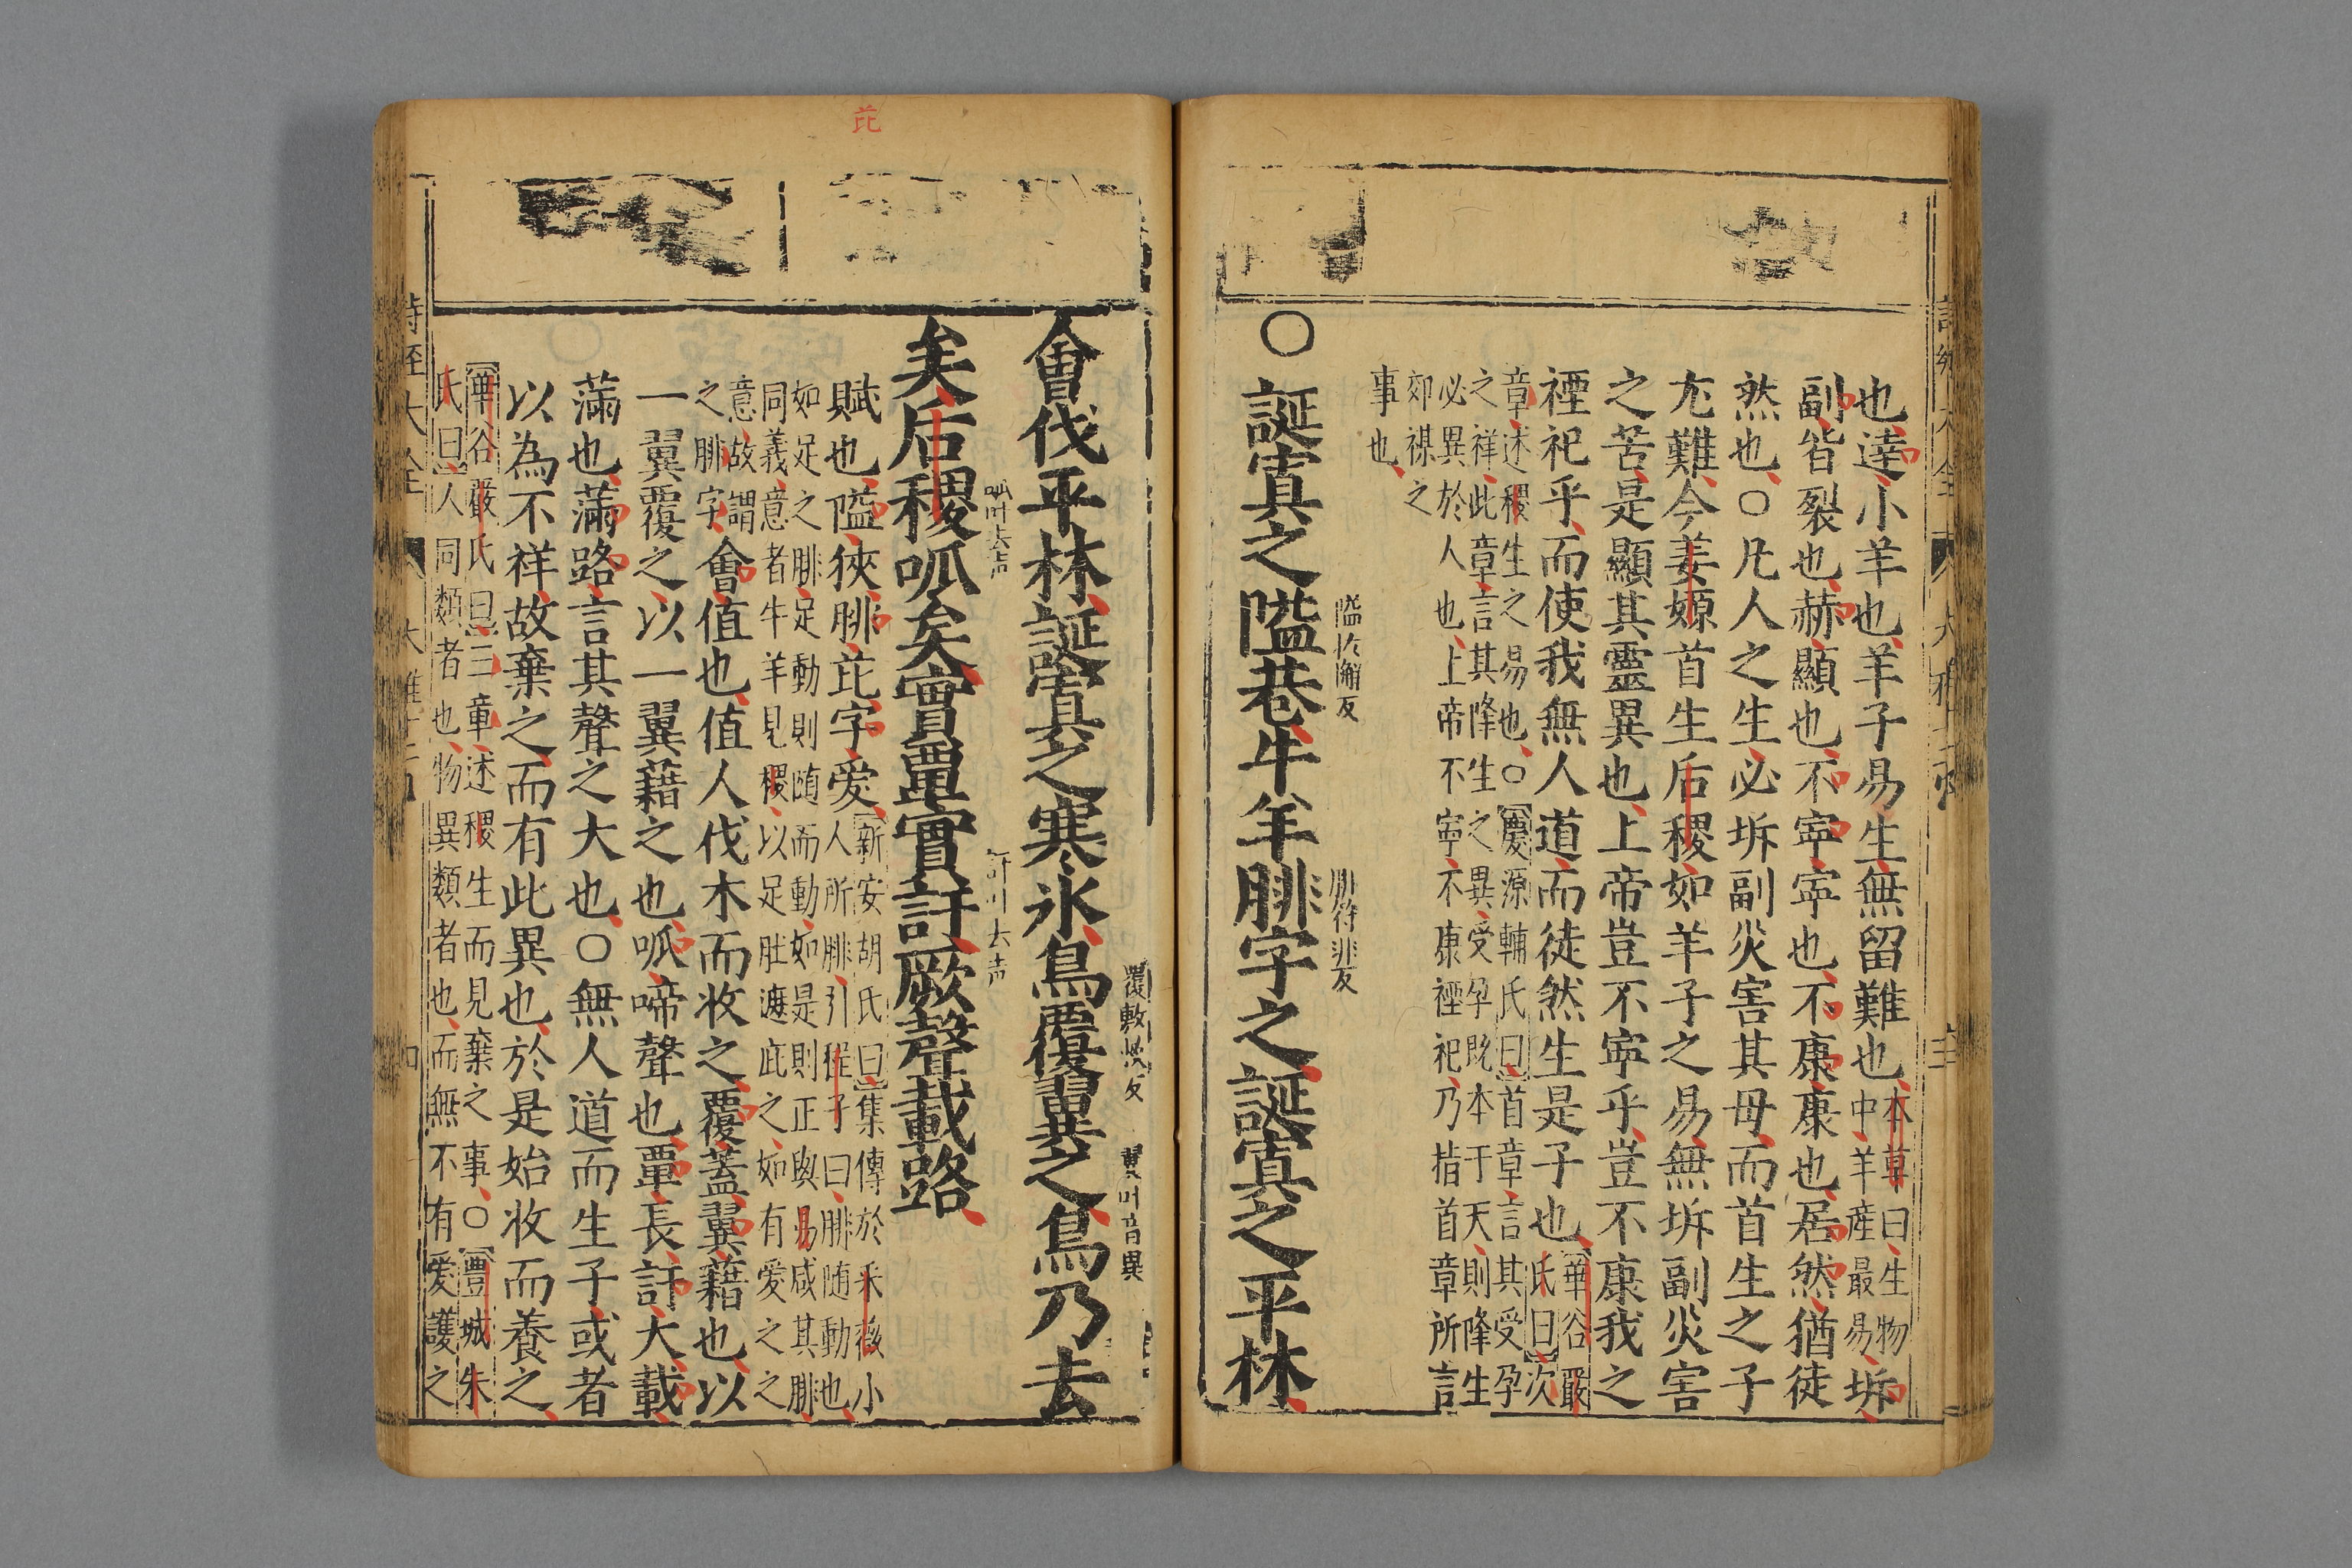 也逹小羊也羊子易生無留難也本草曰生物
中羊産最易坼
副皆裂也赫顯也不寧寧也不康康也居然猶徒
然也○凡人之生必坼副災害其母而首生之子
尤難今姜嫄首生后稷如羊子之易無坼副災害
之苦是顯其靈異也上帝豈不寧乎豈不康我之
禋祀乎而使我無人道而徒然生是子也華谷嚴
氏曰次
章述稷生之易也○慶源輔氏曰首章言其受孕
之祥此章言其降生之異受孕既本于天則降生
必異於人也上帝不寧不康禋祀乃指首章所言
郊禖之
事也
隘於懈反
腓符非反
○誕寘之隘巷牛羊腓字之誕寘之平林
覆敷救反
翼叶音異
會伐平林誕寘之寒氷鳥覆翼之鳥乃去
呱叶去声
訏叶去声
矣后稷呱矣實覃實訏厥聲載路
賦也隘狹腓芘字愛新安胡氏曰集傳於采薇小
人所腓引程子曰腓随動也
如足之腓足動則随而動如是則正與易咸其腓
同義意者牛羊見稷以足肚遮庇之如有愛之之
意故謂
之腓字會值也值人伐木而收之覆蓋翼藉也以
一翼覆之以一翼藉之也呱啼聲也覃長訏大載
滿也滿路言其聲之大也○無人道而生子或者
以為不祥故棄之而有此異也於是始收而養之
華谷嚴氏曰三章述稷生而見棄之事○豐城朱
氏曰人同類者也物異類者也而無不有愛護之
芘
詩經大全
大雅十